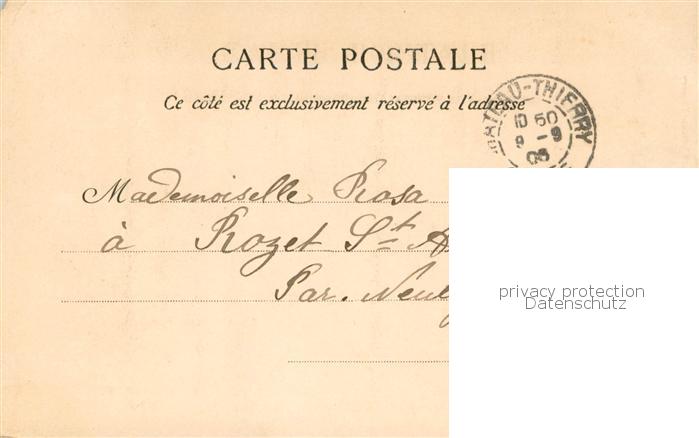 CARTE POSTALE
Ce côté est exclusivement réservé à l'adresse
ATEAU-THIERRY
10 50
9 - 9
03
Mademoiselle Rosa
à Rozet St. A
Par. Neuil
privacy protection
Datenschutz